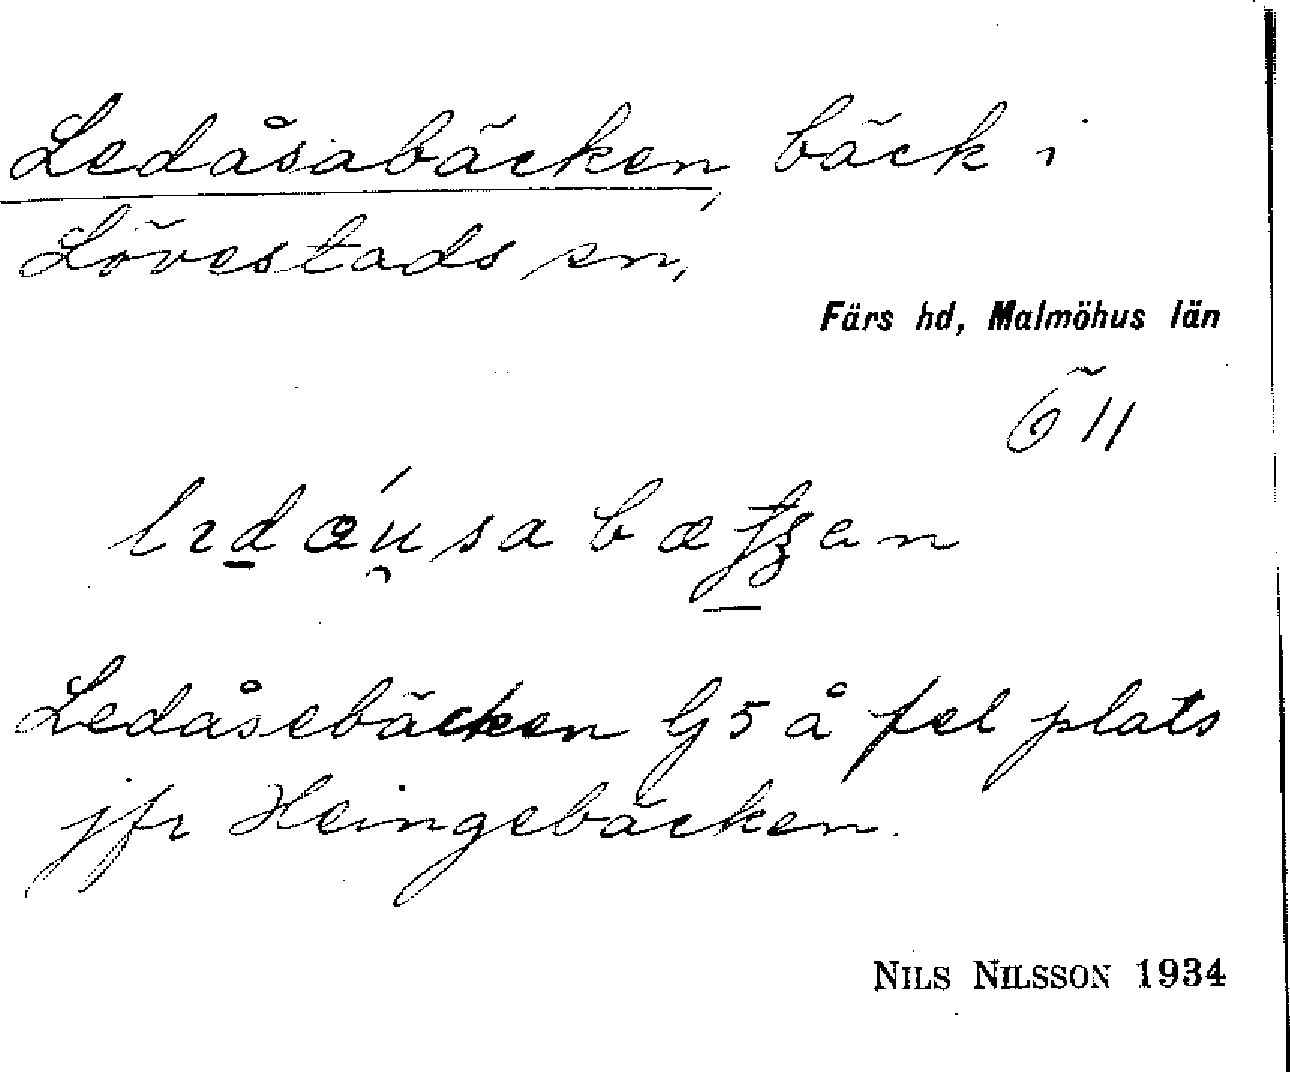 Ledåsabäcken, bäck i
Lövestads sn,
Färs hd, Malmöhus län
Ö 11
Ledåsebäcken G5 å fel plats
jfr Heingebäcken.
NILS NILSSON 1934